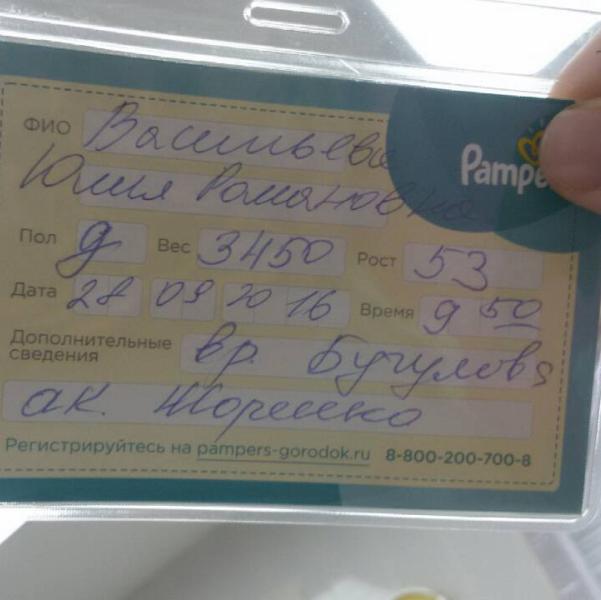 ФИО Васильева
Юлия Романовна
Pampe
Пол д Вес 3450 Рост 53
Дата 28 09 20 16 Время 9 50
Дополнительные сведения вр. Бугулова
ак.
Регистрируйтесь на pampers-gorodok.ru 8-800-200-700-8